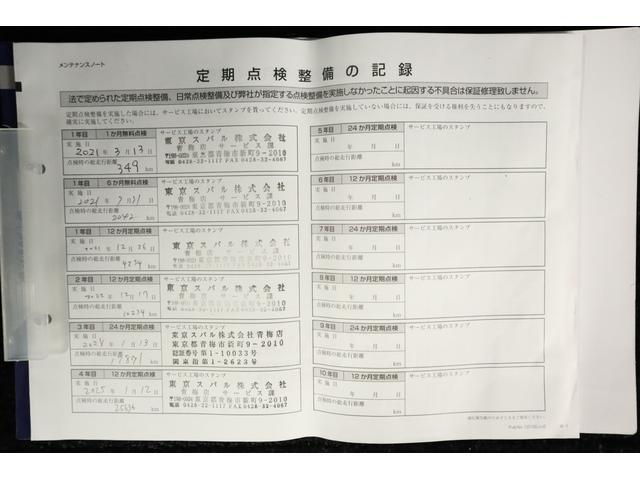 メンテナンスノート
定期点検整備の記録
法で定められた定期点検整備、日常点検整備及び弊社が指定する点検整備を実施しなかったことに起因する不具合は保証修理致しません。
定期点検整備を実施した場合には、サービス工場においてスタンプを貰ってください。定期点検整備を実施していない場合には、保証を受ける権利を失うこともなりますので、
確実に実施してください。
1年目 1か月無料点検 サービス工場のスタンプ
実施日
2021年3月13日
点検時の総走行距離
349 km
東京スバル株式会社
青梅店 サービス課
〒198-0024 東京都青梅市新町9-2010
電話 0428-32-1117 FAX 0428-32-4067
1年目 6か月無料点検 サービス工場のスタンプ
実施日
2021年7月31日
点検時の総走行距離
2042 km
東京スバル株式会社
青梅店 サービス課
〒198-0024 東京都青梅市新町9-2010
電話 0428-32-1117 FAX 0428-32-4067
1年目 12か月定期点検 サービス工場のスタンプ
実施日
年12月26日
点検時の総走行距離
km
東京スバル株式会社
青梅店 サービス課
〒198-0024 東京都青梅市新町9-2010
電話 0428-32-1117 FAX 0428-32-4067
2年目 12か月定期点検 サービス工場のスタンプ
実施日
年12月17日
点検時の総走行距離
10234 km
東京スバル株式会社
青梅店 サービス課
〒198-0024 東京都青梅市新町9-2010
電話 0428-32-1117 FAX 0428-32-4067
3年目 24か月定期点検 サービス工場のスタンプ
実施日
年1月13日
点検時の総走行距離
17871 km
東京スバル株式会社青梅店
東京都青梅市新町9-2010
認証番号第1-10033号
関東指第1-2623号
4年目 12か月定期点検 サービス工場のスタンプ
実施日
2025年1月12日
点検時の総走行距離
km
東京スバル株式会社
青梅店 サービス課
〒198-0024 東京都青梅市新町9-2010
電話 0428-32-1117 FAX 0428-32-4067
5年目 24か月定期点検 サービス工場のスタンプ
実施日
年 月 日
点検時の総走行距離
km
6年目 12か月定期点検 サービス工場のスタンプ
実施日
年 月 日
点検時の総走行距離
km
7年目 24か月定期点検 サービス工場のスタンプ
実施日
年 月 日
点検時の総走行距離
km
8年目 12か月定期点検 サービス工場のスタンプ
実施日
年 月 日
点検時の総走行距離
km
9年目 24か月定期点検 サービス工場のスタンプ
実施日
年 月 日
点検時の総走行距離
km
10年目 12か月定期点検 サービス工場のスタンプ
実施日
年 月 日
点検時の総走行距離
km